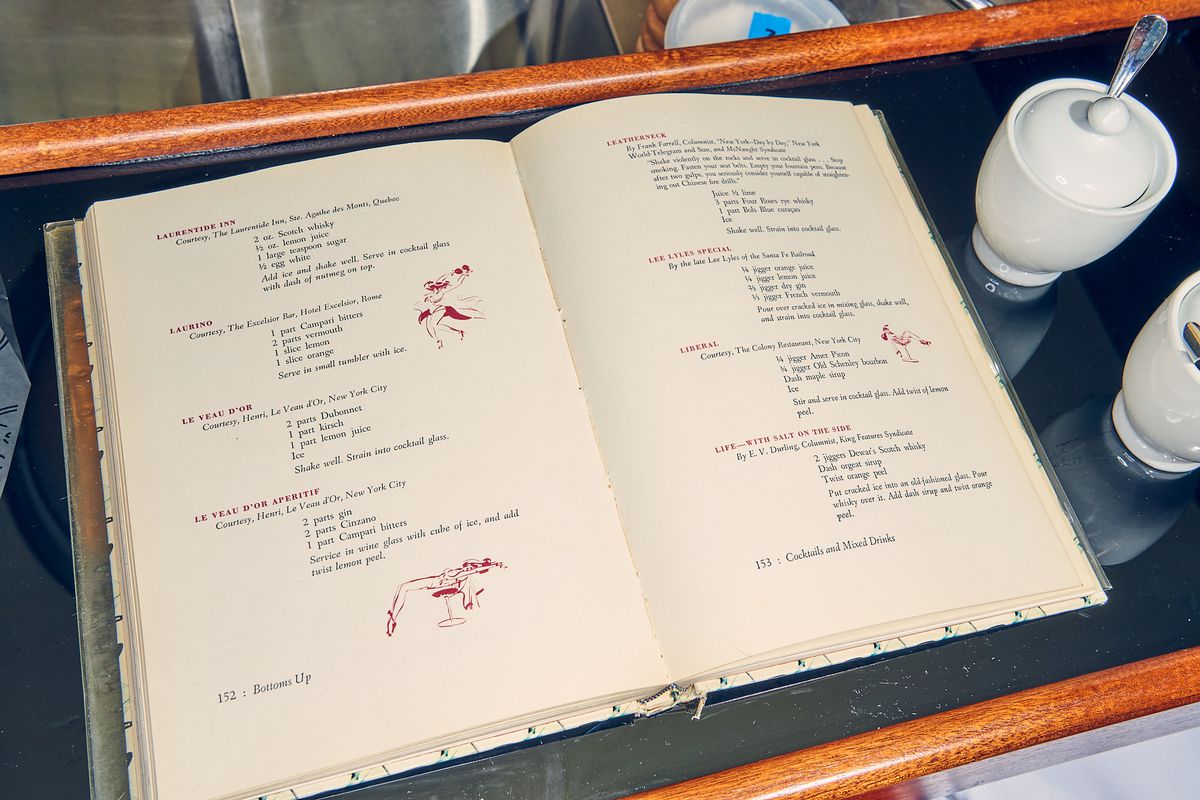 LAURENTIDE INN
Courtesy, The Laurentide Inn, Ste. Agathe des Monts, Quebec
2 oz. Scotch whisky
½ oz. lemon juice
1 large teaspoon sugar
½ egg white
Add ice and shake well. Serve in cocktail glass
with dash of nutmeg on top.
LAURINO
Courtesy, The Excelsior Bar, Hotel Excelsior, Rome
1 part Campari bitters
2 parts vermouth
1 slice lemon
1 slice orange
Serve in small tumbler with ice.
LE VEAU D'OR
Courtesy, Henri, Le Veau d'Or, New York City
2 parts Dubonnet
1 part kirsch
1 part lemon juice
Ice
Shake well. Strain into cocktail glass.
LE VEAU D'OR APERITIF
Courtesy, Henri, Le Veau d'Or, New York City
2 parts gin
2 parts Cinzano
1 part Campari bitters
Service in wine glass with cube of ice, and add
twist lemon peel.
152 : Bottoms Up
LEATHERNECK
By Frank Farrell, Columnist, "New York—Day by Day," New York
World-Telegram and Sun, and McNaught Syndicate
"Shake violently on the rocks and serve in cocktail glass . . . Stop
smoking. Fasten your seat belts. Empty your fountain pens. Because
after two gulps, you seriously consider yourself capable of straighten-
ing out Chinese fire drills."
Juice ½ lime
3 parts Four Roses rye whisky
1 part Bols Blue curaçao
Ice
Shake well. Strain into cocktail glass.
LEE LYLES SPECIAL
By the late Lee Lyles of the Santa Fe Railroad
¼ jigger orange juice
¼ jigger lemon juice
⅔ jigger dry gin
⅓ jigger French vermouth
Pour over cracked ice in mixing glass, shake well,
and strain into cocktail glass.
LIBERAL
Courtesy, The Colony Restaurant, New York City
¼ jigger Amer Picon
¾ jigger Old Schenley bourbon
Dash maple sirup
Ice
Stir and serve in cocktail glass. Add twist of lemon
peel.
LIFE—WITH SALT ON THE SIDE
By E. V. Durling, Columnist, King Features Syndicate
2 jiggers Dewar's Scotch whisky
Dash orgeat sirup
Twist orange peel
Put cracked ice into an old-fashioned glass. Pour
whisky over it. Add dash sirup and twist orange
peel.
153 : Cocktails and Mixed Drinks